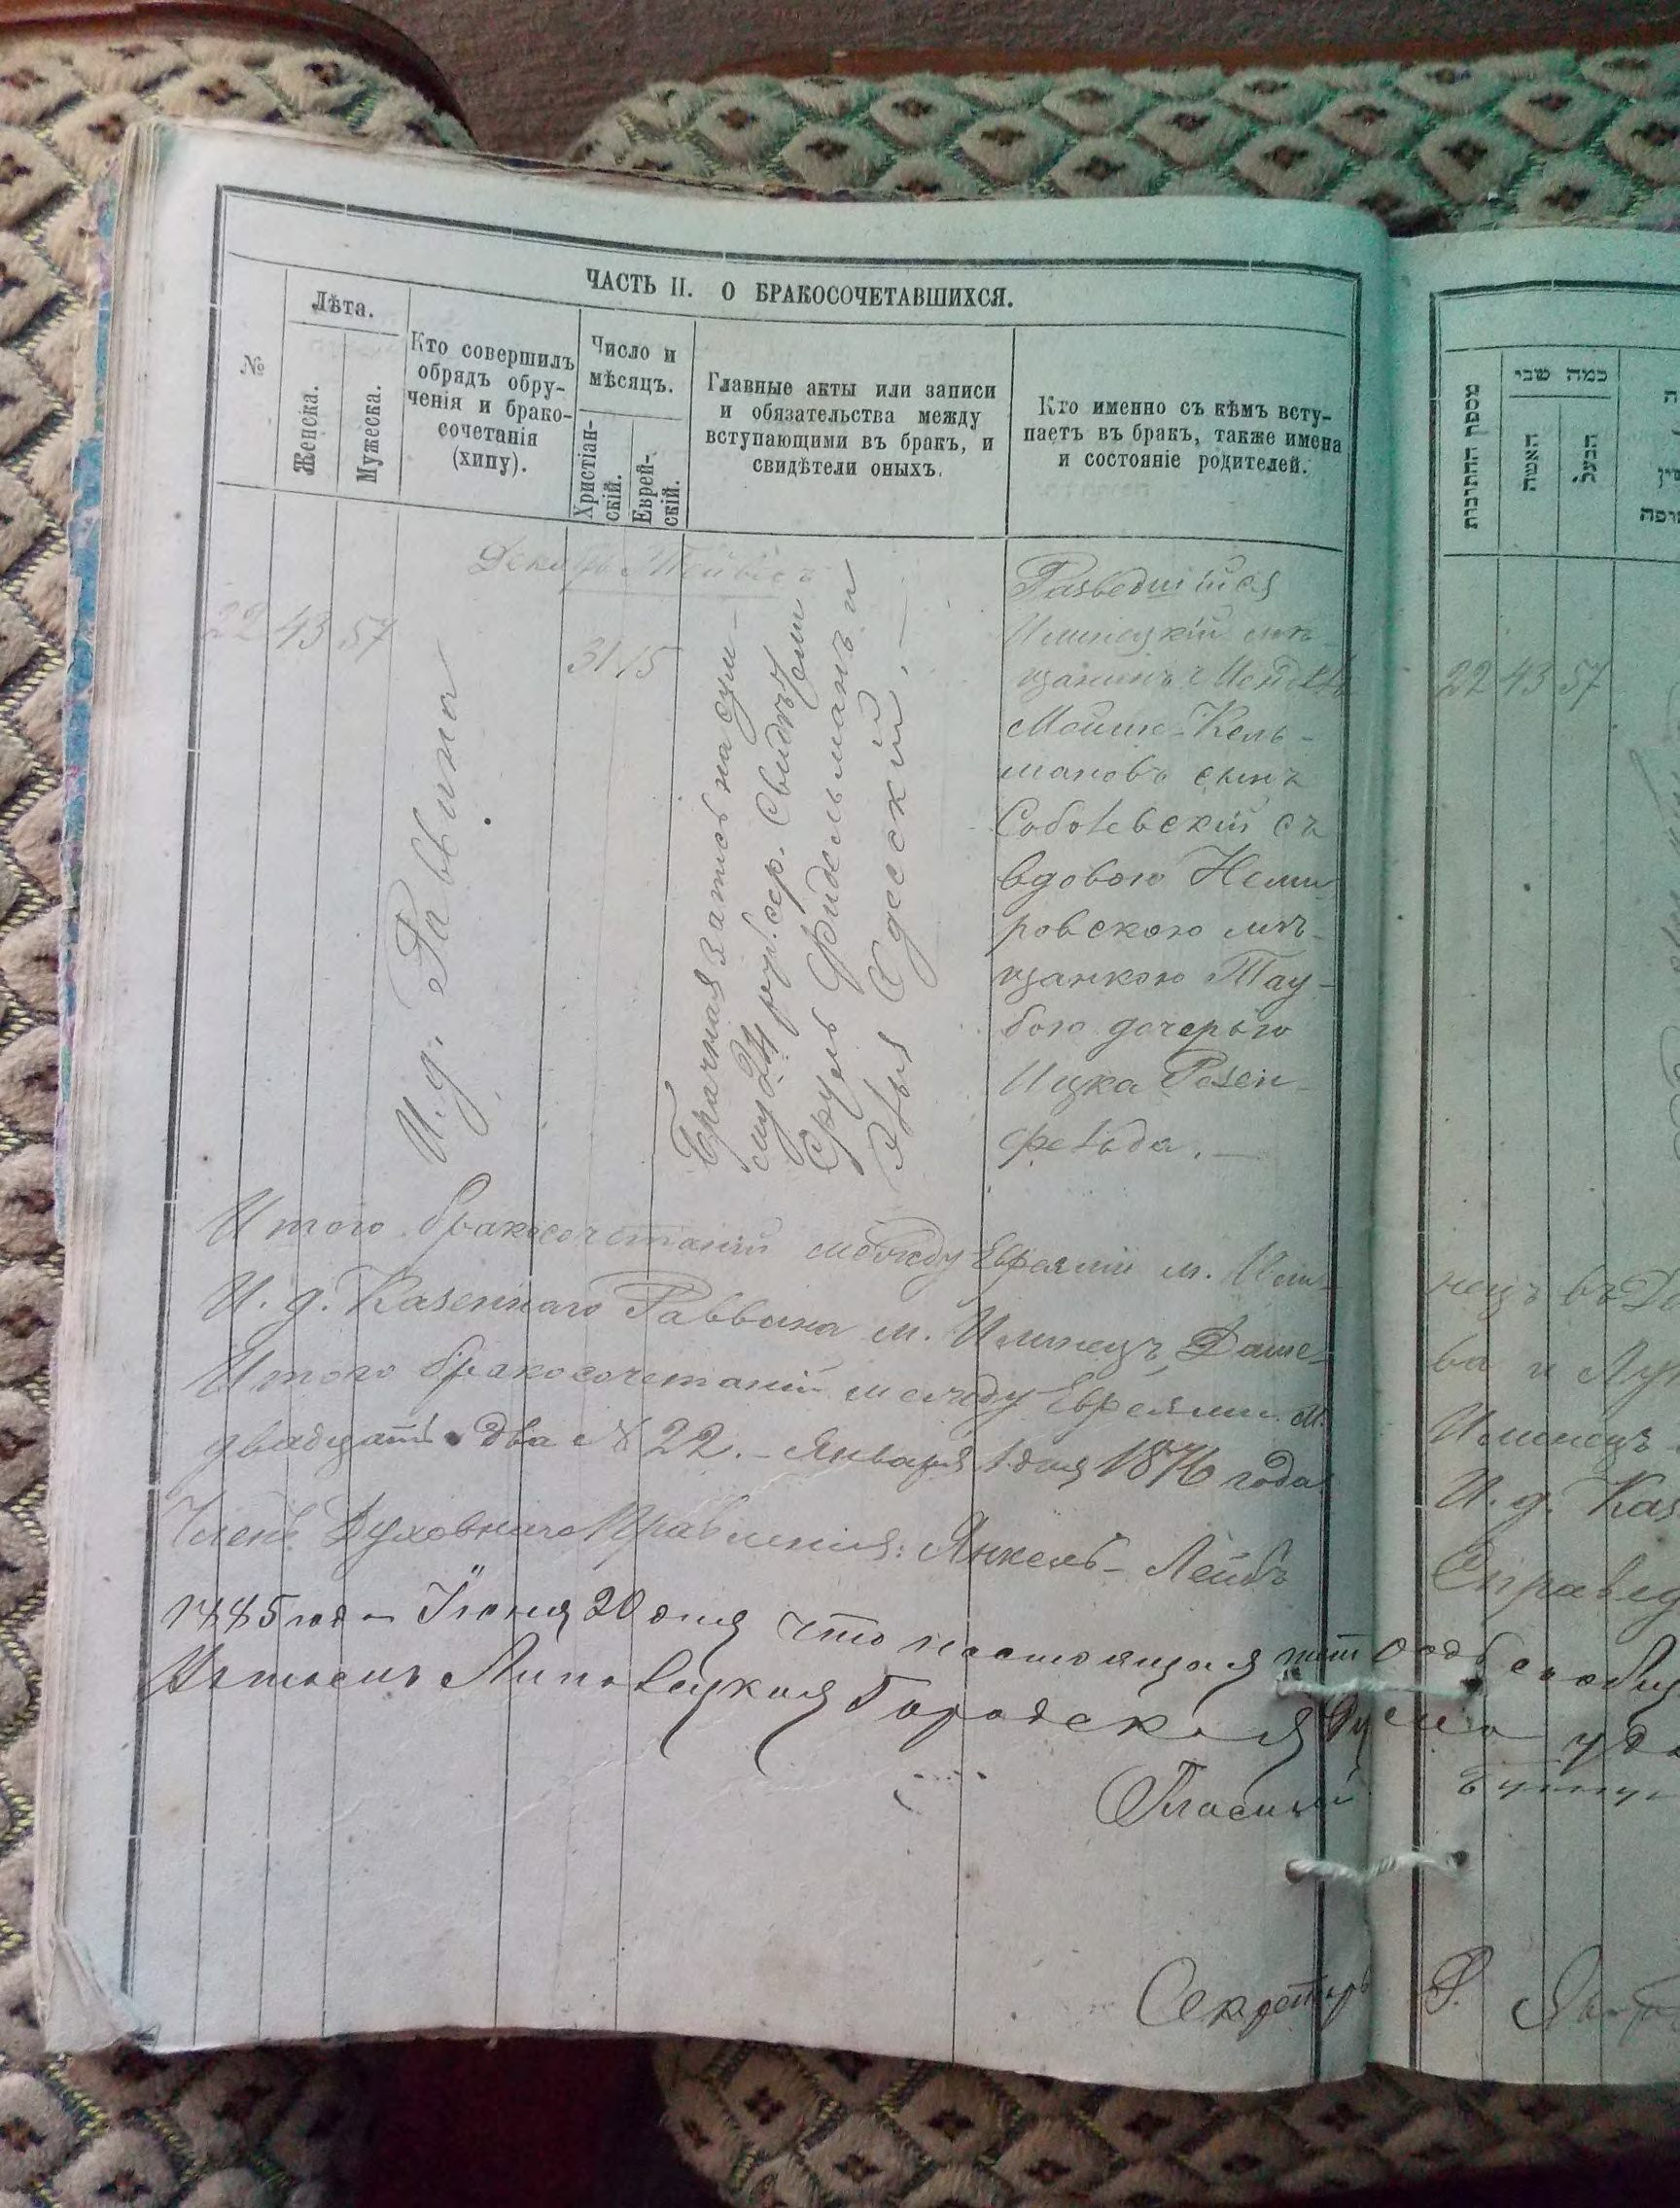 ЧАСТЬ II. О БРАКОСОЧЕТАВШИХСЯ.
№
Лѣта.
Женска.
Мужеска.
Кто совершилъ
обрядъ обру-
ченія и брако-
сочетанія
(хипу).
Число и
мѣсяцъ.
Христіан-
скій.
Еврей-
скій.
Главные акты или записи
и обязательства между
вступающими въ бракъ, и
свидѣтели оныхъ.
Кто именно съ кѣмъ всту-
паетъ въ бракъ, также имена
и состояніе родителей.
Декабрь Тейвисъ
22 43 57
И. д. Раввина
31 15
Брачная запись на сум-
му 24 руб. сер. Свидѣтели
Сруль Фидельманъ и
Одесскій. —
Разведшійся
Илинецкій мѣ-
щанинъ
Мошко-Кель-
мановъ сынъ
Соболевскій съ
вдовою Неми-
ровскою мѣ-
щанкою Тау-
бою дочерью
Ицка Розен-
фельда. —
Итого бракосочетаній между Евреями м. Или-
И. д. Казеннаго Раввина м. Илинецъ, Даше-
Итого бракосочетаній между Евреями м.
двадцать два № 22. – Января 1 дня 1876 года
Членъ Духовнаго Правленія: Янкель-Лейбъ
1885 года Іюня 20 дня что настоящая
Липовецкая Городская
Гласный
Секретарь
מספר החתונות
כמה שני
האשה
הבעל
22 43 57
нецъ въ
ва и
Илинецъ
И. д. Каз